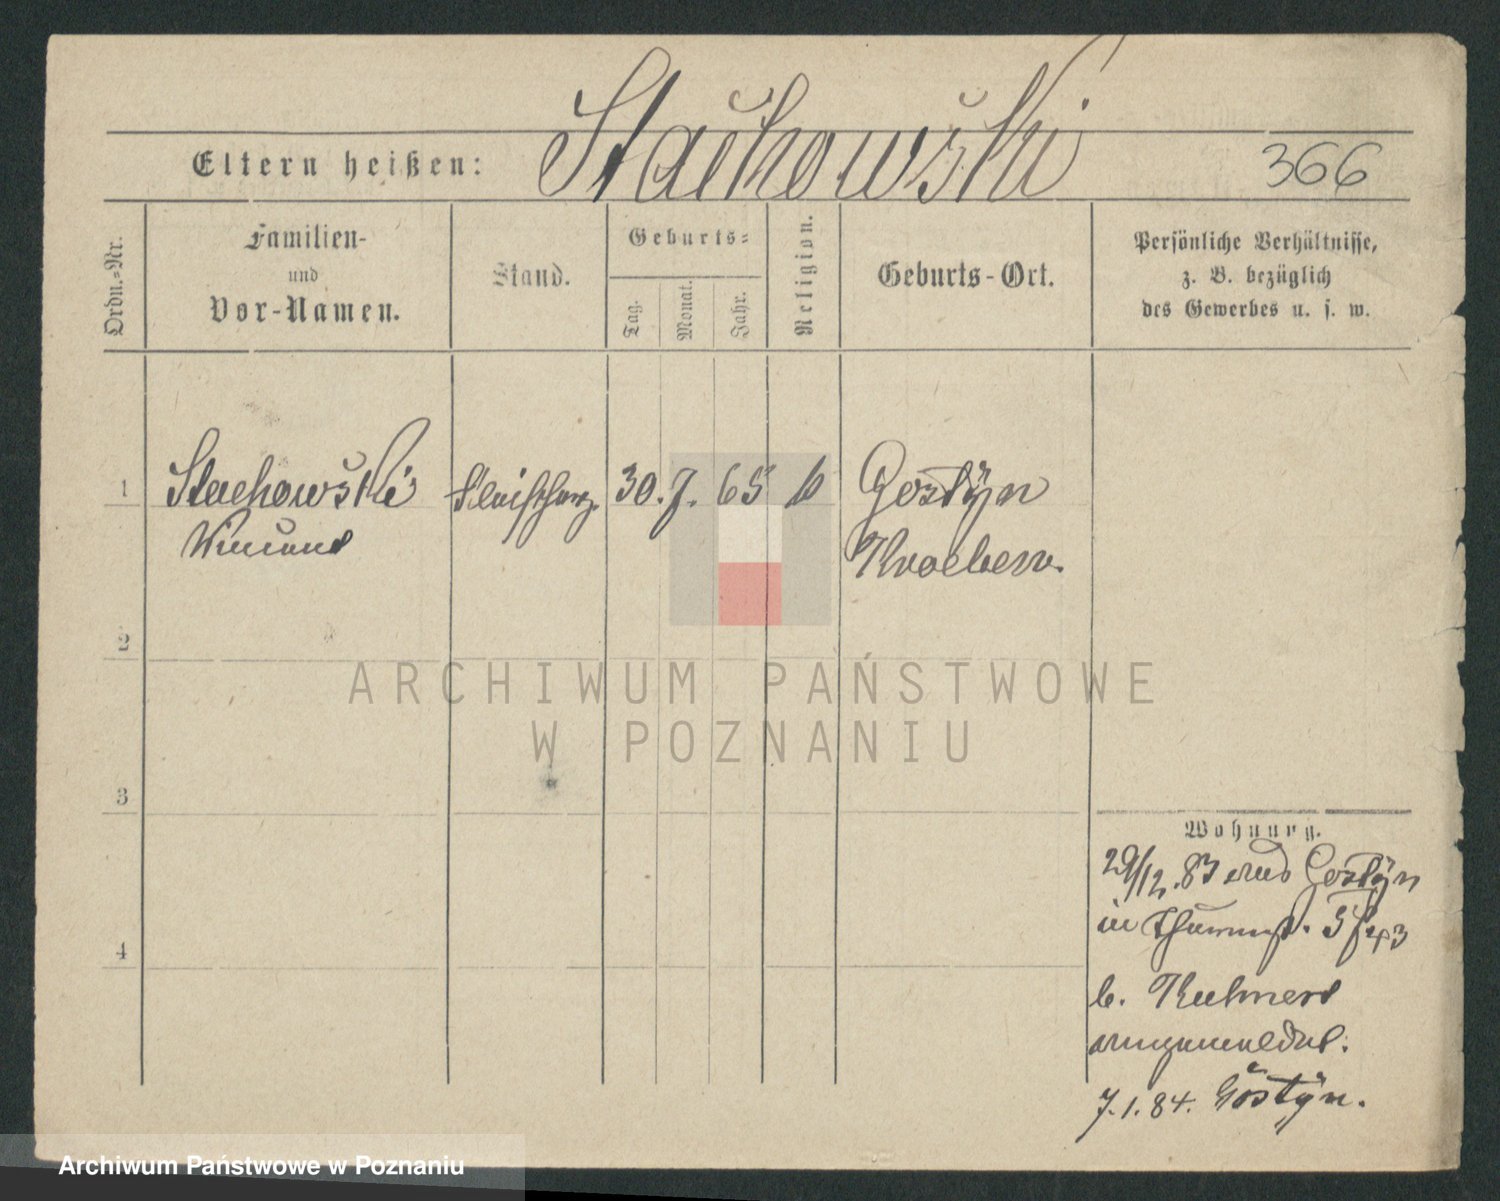 Stachowski
Eltern heißen:
366
Ordn.=Nr.
Familien-
und
Vor-Namen.
Stand.
Geburts=
Tag.
Monat.
Jahr.
Religion.
Geburts-Ort.
Persönliche Verhältnisse,
z. B. bezüglich
des Gewerbes u. s. w.
1
Stachowski
30. 7. 65
Gostÿn
Vincent
Kroeben.
2
3
4
Wohnung.
29/12. 83 aus Gostÿn
in
b.
angemeldet.
7. 1. 84. Gostÿn.
ARCHIWUM PAŃSTWOWE
W POZNANIU
Archiwum Państwowe w Poznaniu